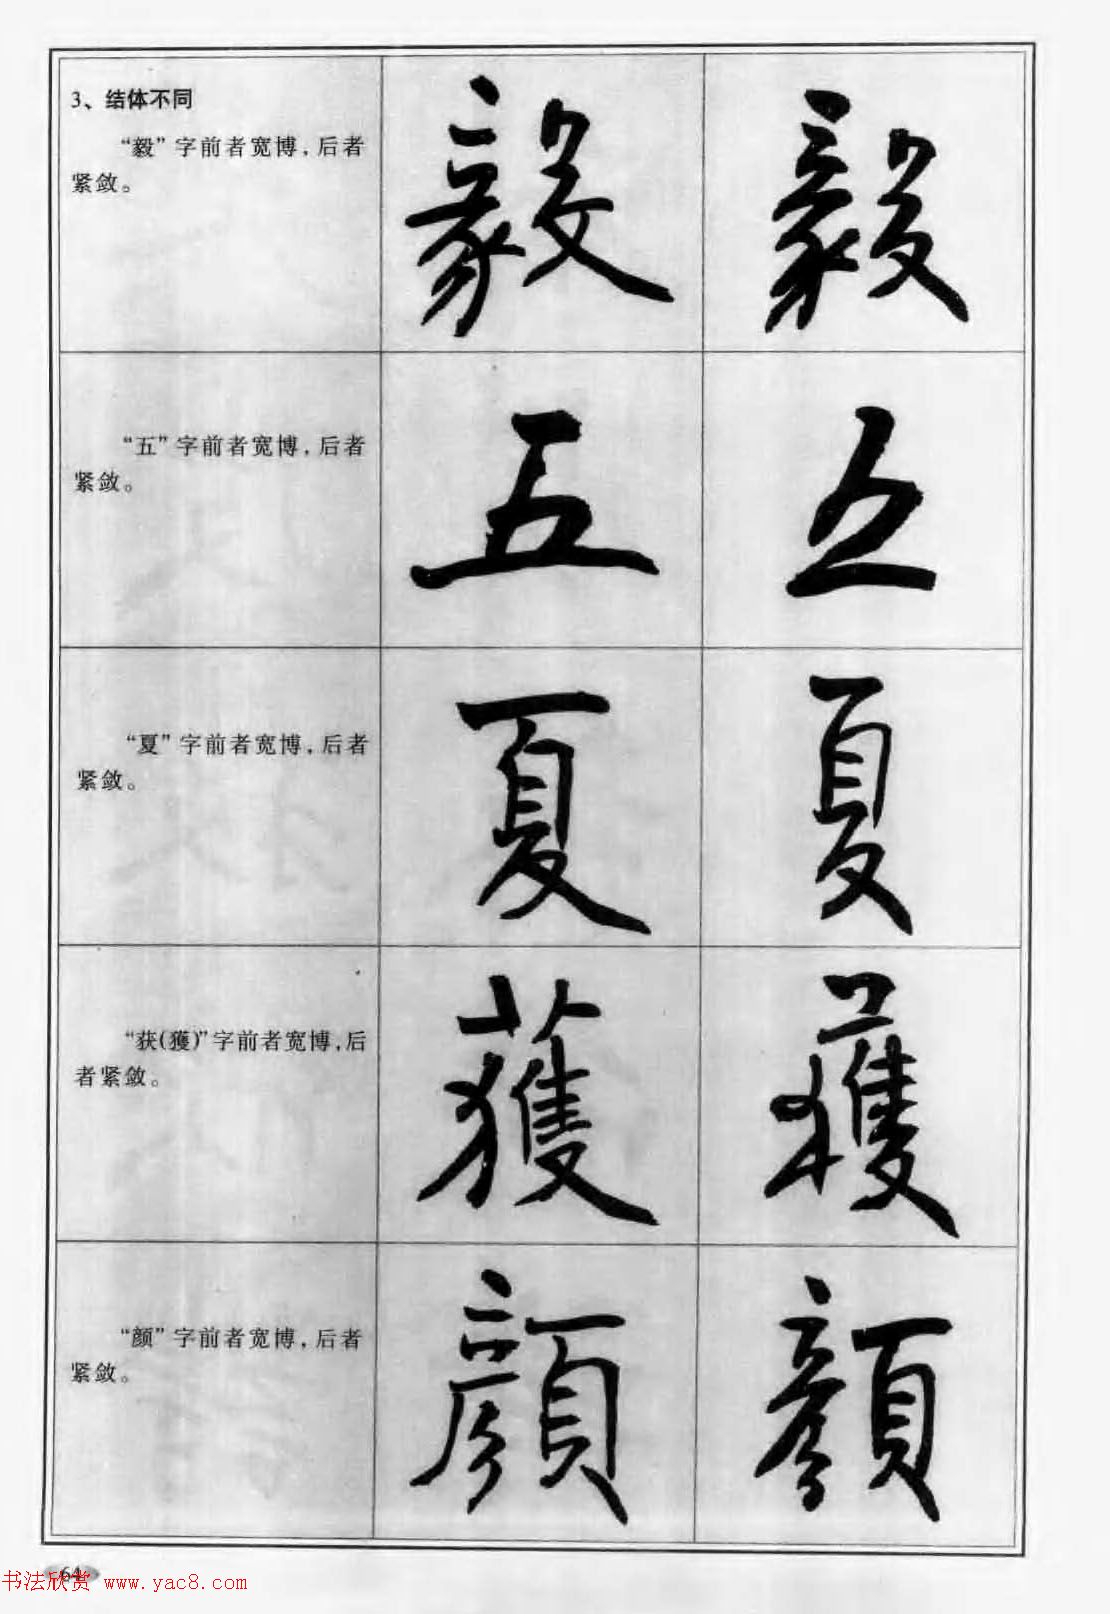 3、结体不同
“毅”字前者宽博，后者
紧敛。
毅 毅
“五”字前者宽博，后者
紧敛。
五 五
“夏”字前者宽博，后者
紧敛。
夏 夏
“获(獲)”字前者宽博，后
者紧敛。
獲 獲
“颜”字前者宽博，后者
紧敛。
顏 顏
64
书法欣赏 www.yac8.com